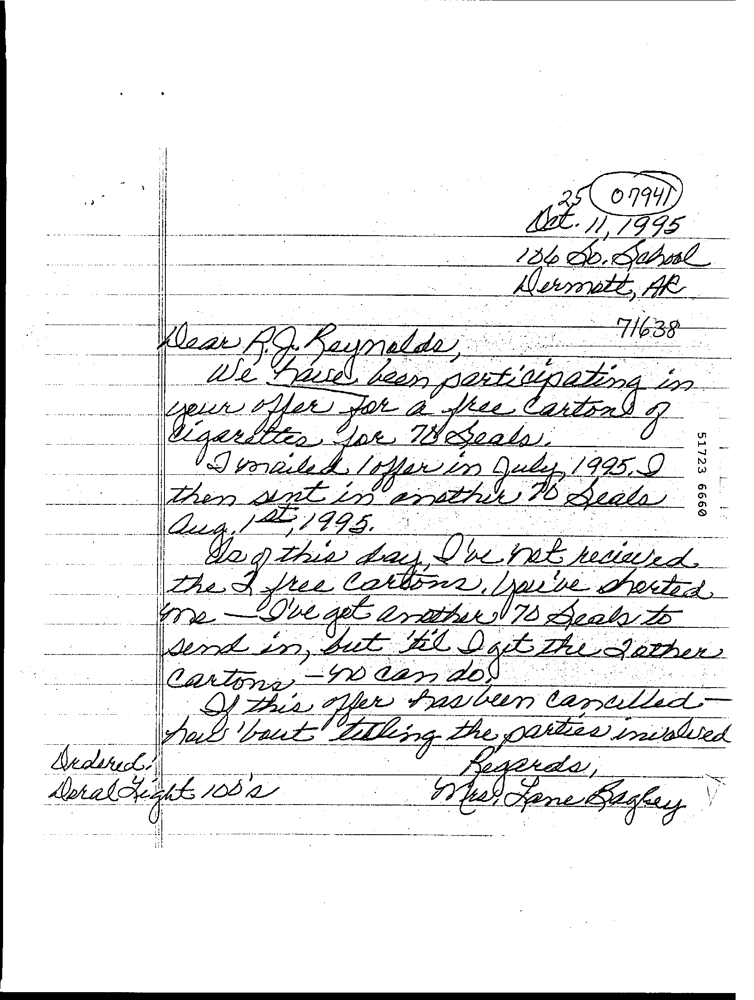 25 07941
Oct. 11, 1995
106 So. School
Dermott, AR
71638
Dear R.J. Reynolds,
We have been participating in
your offer for a free cartons of
cigarettes for 70 Seals.
I mailed 1 offer in July, 1995. I
then sent in another 70 Seals
Aug. 1st, 1995.
As of this day, I've not recieved
the 2 free cartons. You've shorted
me — I've got another 70 Seals to
send in, but 'til I get the 2 other
cartons — no can do.
If this offer has been cancelled —
how 'bout telling the parties involved
Regards,
Mrs. Lane Bagbey
Ordered:
Doral Light 100's
51723 6660